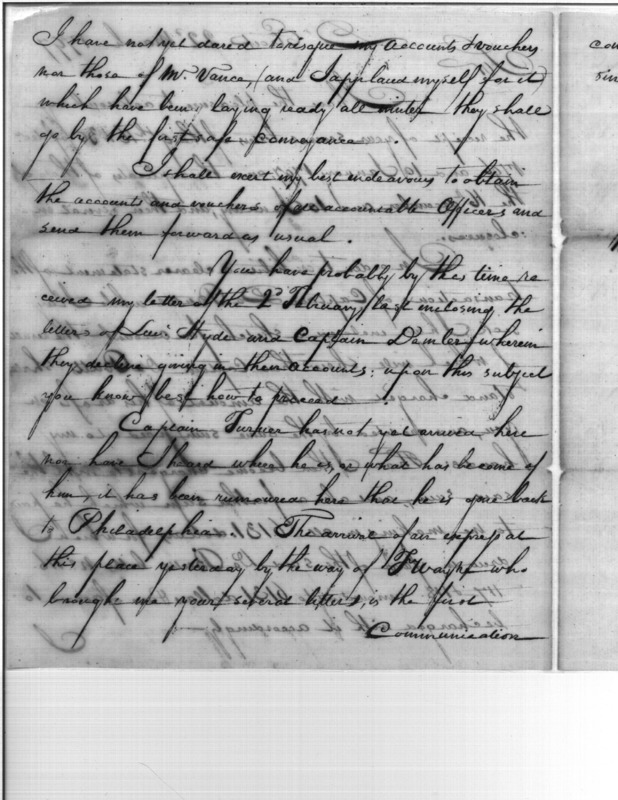 I have not yet dared to risque my accounts & vouchers
nor those of Mr Vance, (and I applaud myself for it)
which have been laying ready all winter they shall
go by the first safe conveyance.
I shall exert my best endeavours to obtain
the accounts and vouchers of all accountable Officers and
send them forward as usual.
You have probably by this time re
ceived my letter of the 2d February last inclosing the
letters of Lieut Hyde and Captain Demler wherein
they decline giving in their accounts; upon this subject
you know best how to proceed.
Captain Turner has not yet arrived here
nor have I heard where he is, or what has become of
him, it has been rumoured here that he is gone back
to Philadelphia. The arrival of an express at
this place yesterday by the way of F Wayne who
brought me your several letters, is the first
Communication
con
sin